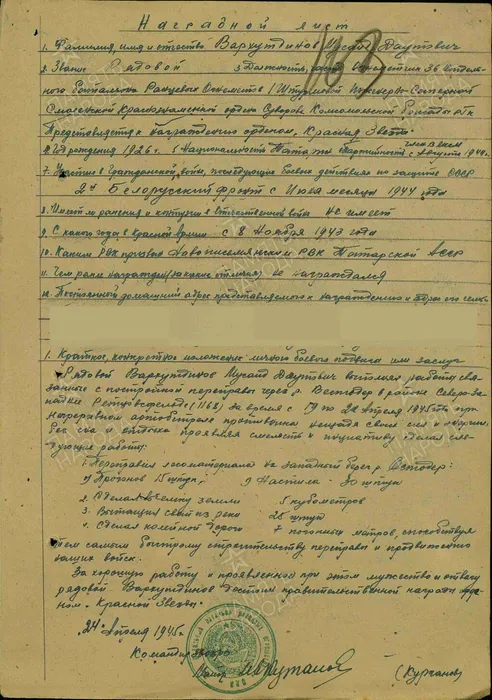 Наградной лист
1. Фамилия, имя и отчество Вархутдинов Мусаит Даутович
2. Звание Рядовой 3. Должность, часть Огнеметчик 36 отдель-
ного батальона Ранцевых Огнеметов 1 Штурмовой Инженерно-Саперной
Смоленской Краснознаменной ордена Суворова Комсомольской Бригады РГК
Представляется к награждению орденом "Красная Звезда"
4. Год рождения 1926 г. 5. Национальность Татарин 6. Партийность член ВЛКСМ с Августа 1944 г.
7. Участие в Гражданской войне, последующих боевых действиях по защите СССР
2й Белорусский фронт с Июня месяца 1944 года
8. Имеет ли ранения и контузии в Отечественной войне не имеет
9. С какого года в Красной Армии с 8 Ноября 1943 года
10. Каким РВК призван РВК Татарской АССР
11. Чем ранее награжден (за какие отличия) не награждался
12. Постоянный домашний адрес представляемого к награждению и адрес его семьи
1. Краткое, конкретное изложение личного боевого подвига или заслуг
Рядовой Вархутдинов Мусаит Даутович выполняя работы свя-
занные с постройкой переправы через р. Вестодер в районе Северо-За-
паднее (1168) за время с 19 по 22 апреля 1945 г. при
непрерывном артобстреле противника не щадя своих сил и энергии.
Без сна и отдыха проявляя смелость и инициативу сделал сле-
дующие работы:
1. Переправил лесоматериала на западный берег р. Остодер:
а) Прогонов 15 штук; Настила - 30 штук
2. Сделал выемку земли 5 кубометров
3. Вытащил свай из реки 25 штук
4. Сделал колейной дороги 7 погонных метров, способствуя
тем самым быстрому строительству переправы и продвижению
наших войск.
За хорошую работу и проявленное при этом мужество и отвагу
рядовой Вархутдинов достоин правительственной награды орде-
ном "Красной Звезды".
"24" апреля 1945 г.
Командир
Майор (Курганов)